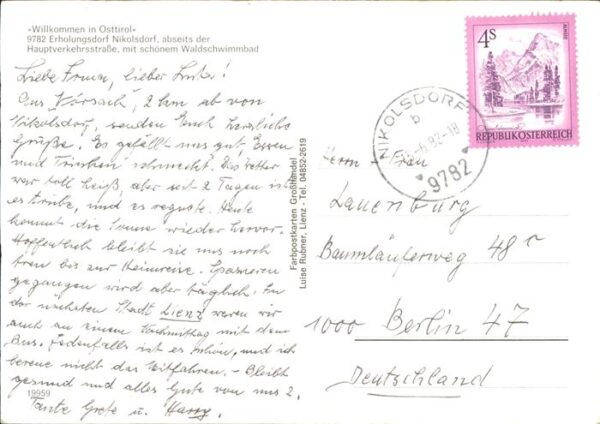 «Willkommen in Osttirol»
9782 Erholungsdorf Nikolsdorf, abseits der
Hauptverkehrsstraße, mit schönem Waldschwimmbad
Liebe lieber !
Aus Nörsach, 2 km ab von
Nikolsdorf, senden Euch herzliche
Grüße. Es gefällt uns gut, Essen
und Trinken schmeckt. Das Wetter
war toll heiß, aber seit 2 Tagen ist
es trübe, und es regnete. Heute
kommt die Sonne wieder hervor.
Hoffentlich bleibt sie uns noch
treu bis zur Heimreise. Spazieren
gegangen wird aber täglich. In
der nächsten Stadt Lienz waren wir
auch an einem Nachmittag mit dem
Bus. Jedenfalls ist es schön, und ich
bereue nicht das Mitfahren. - Bleibt
gesund und alles Gute von uns 2.
Tante Grete u. Harry.
19959
Farbpostkarten Großhandel
Luise Rubner, Lienz - Tel. 04852-2619
4s
ALMSEE
REPUBLIK ÖSTERREICH
NIKOLSDORF
b
.6.82-18
9782
Herrn + Frau
Lauenburg
Baumläuferweg 48
1000 Berlin 47
Deutschland